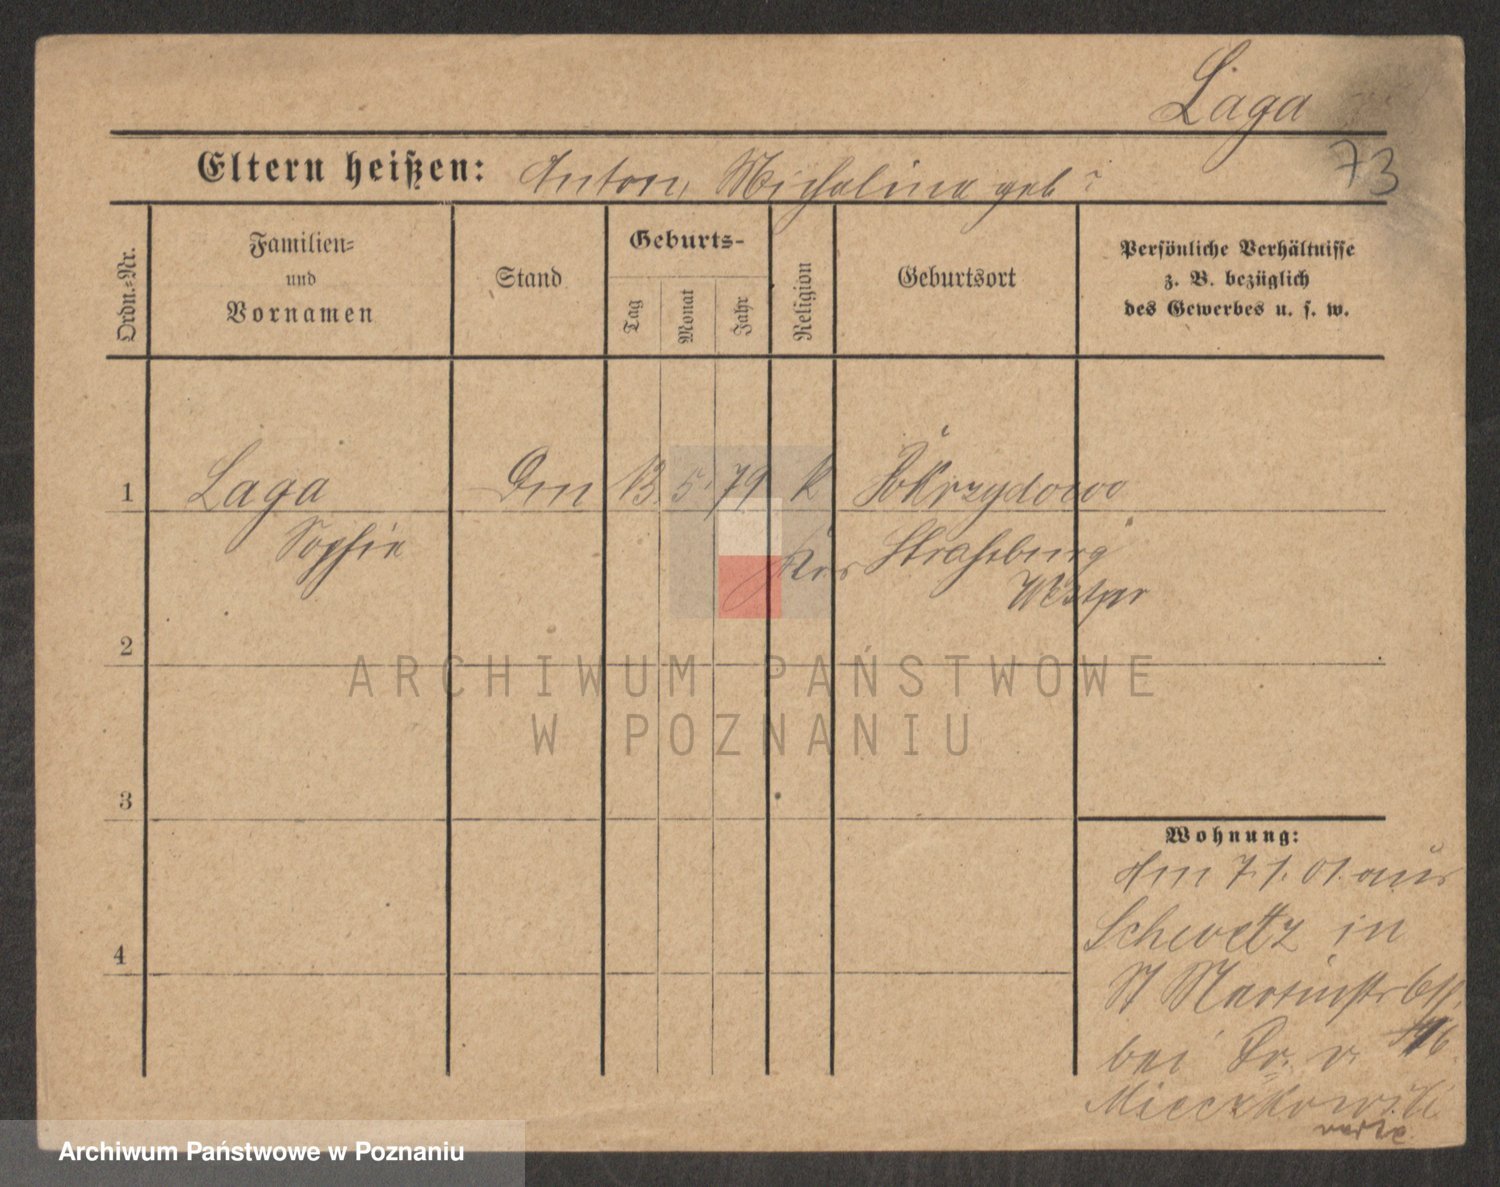 Laga
73
Eltern heißen: Anton, Michalina geb ?
Ordn.-Nr.
Familien-
und
Vornamen
Stand
Geburts-
Tag
Monat
Jahr
Religion
Geburtsort
Persönliche Verhältnisse
z. B. bezüglich
des Gewerbes u. s. w.
1 Laga 13. 5. 79 K
Sophie Krs Strasburg
Westpr
2
3
4
Wohnung:
Am 7.1.01. aus
Schwetz in
St Martinstr
bei Dr. v.
Mieczkowski
verte
ARCHIWUM PAŃSTWOWE
W POZNANIU
Archiwum Państwowe w Poznaniu